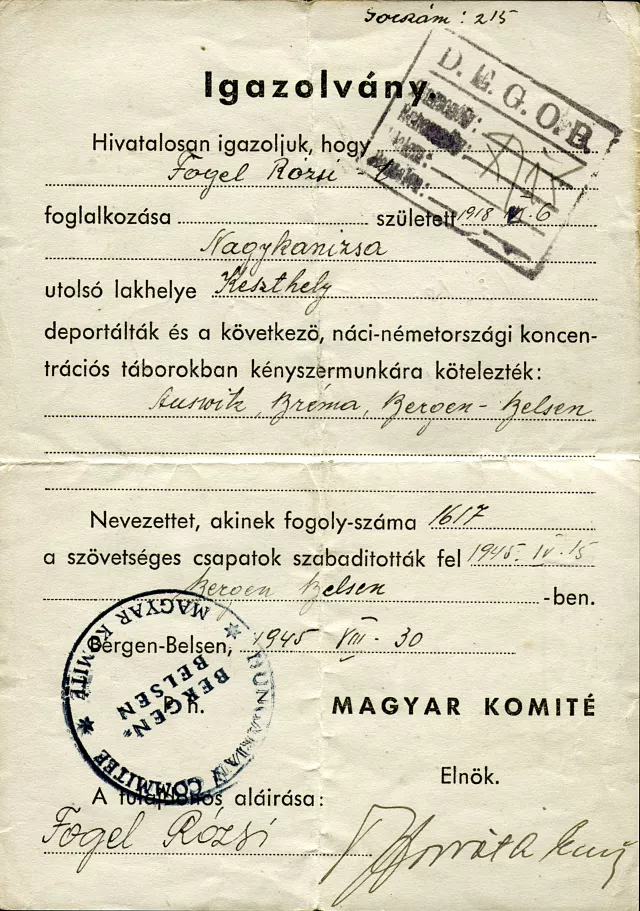 Sorszám: 215
Igazolvány.
D.E.G.O.B.
Hivatalosan igazoljuk, hogy
Fogel Rózsi -t
foglalkozása született 1918 VI. 6
Nagykanizsa
utolsó lakhelye Keszthely
deportálták és a következő, náci-németországi koncen-
trációs táborokban kényszermunkára kötelezték:
Auswitz, Bréma, Bergen-Belsen
Nevezettet, akinek fogoly-száma 1617
a szövetséges csapatok szabadították fel 1945. IV. 15
Bergen Belsen -ben.
Bergen-Belsen, 1945 VIII. 30
P. h.
MAGYAR KOMITÉ
HUNGARIAN COMMITTEE
MAGYAR KOMITÉ
BERGEN-
BELSEN
Elnök.
A tulajdonos aláirása:
Fogel Rózsi